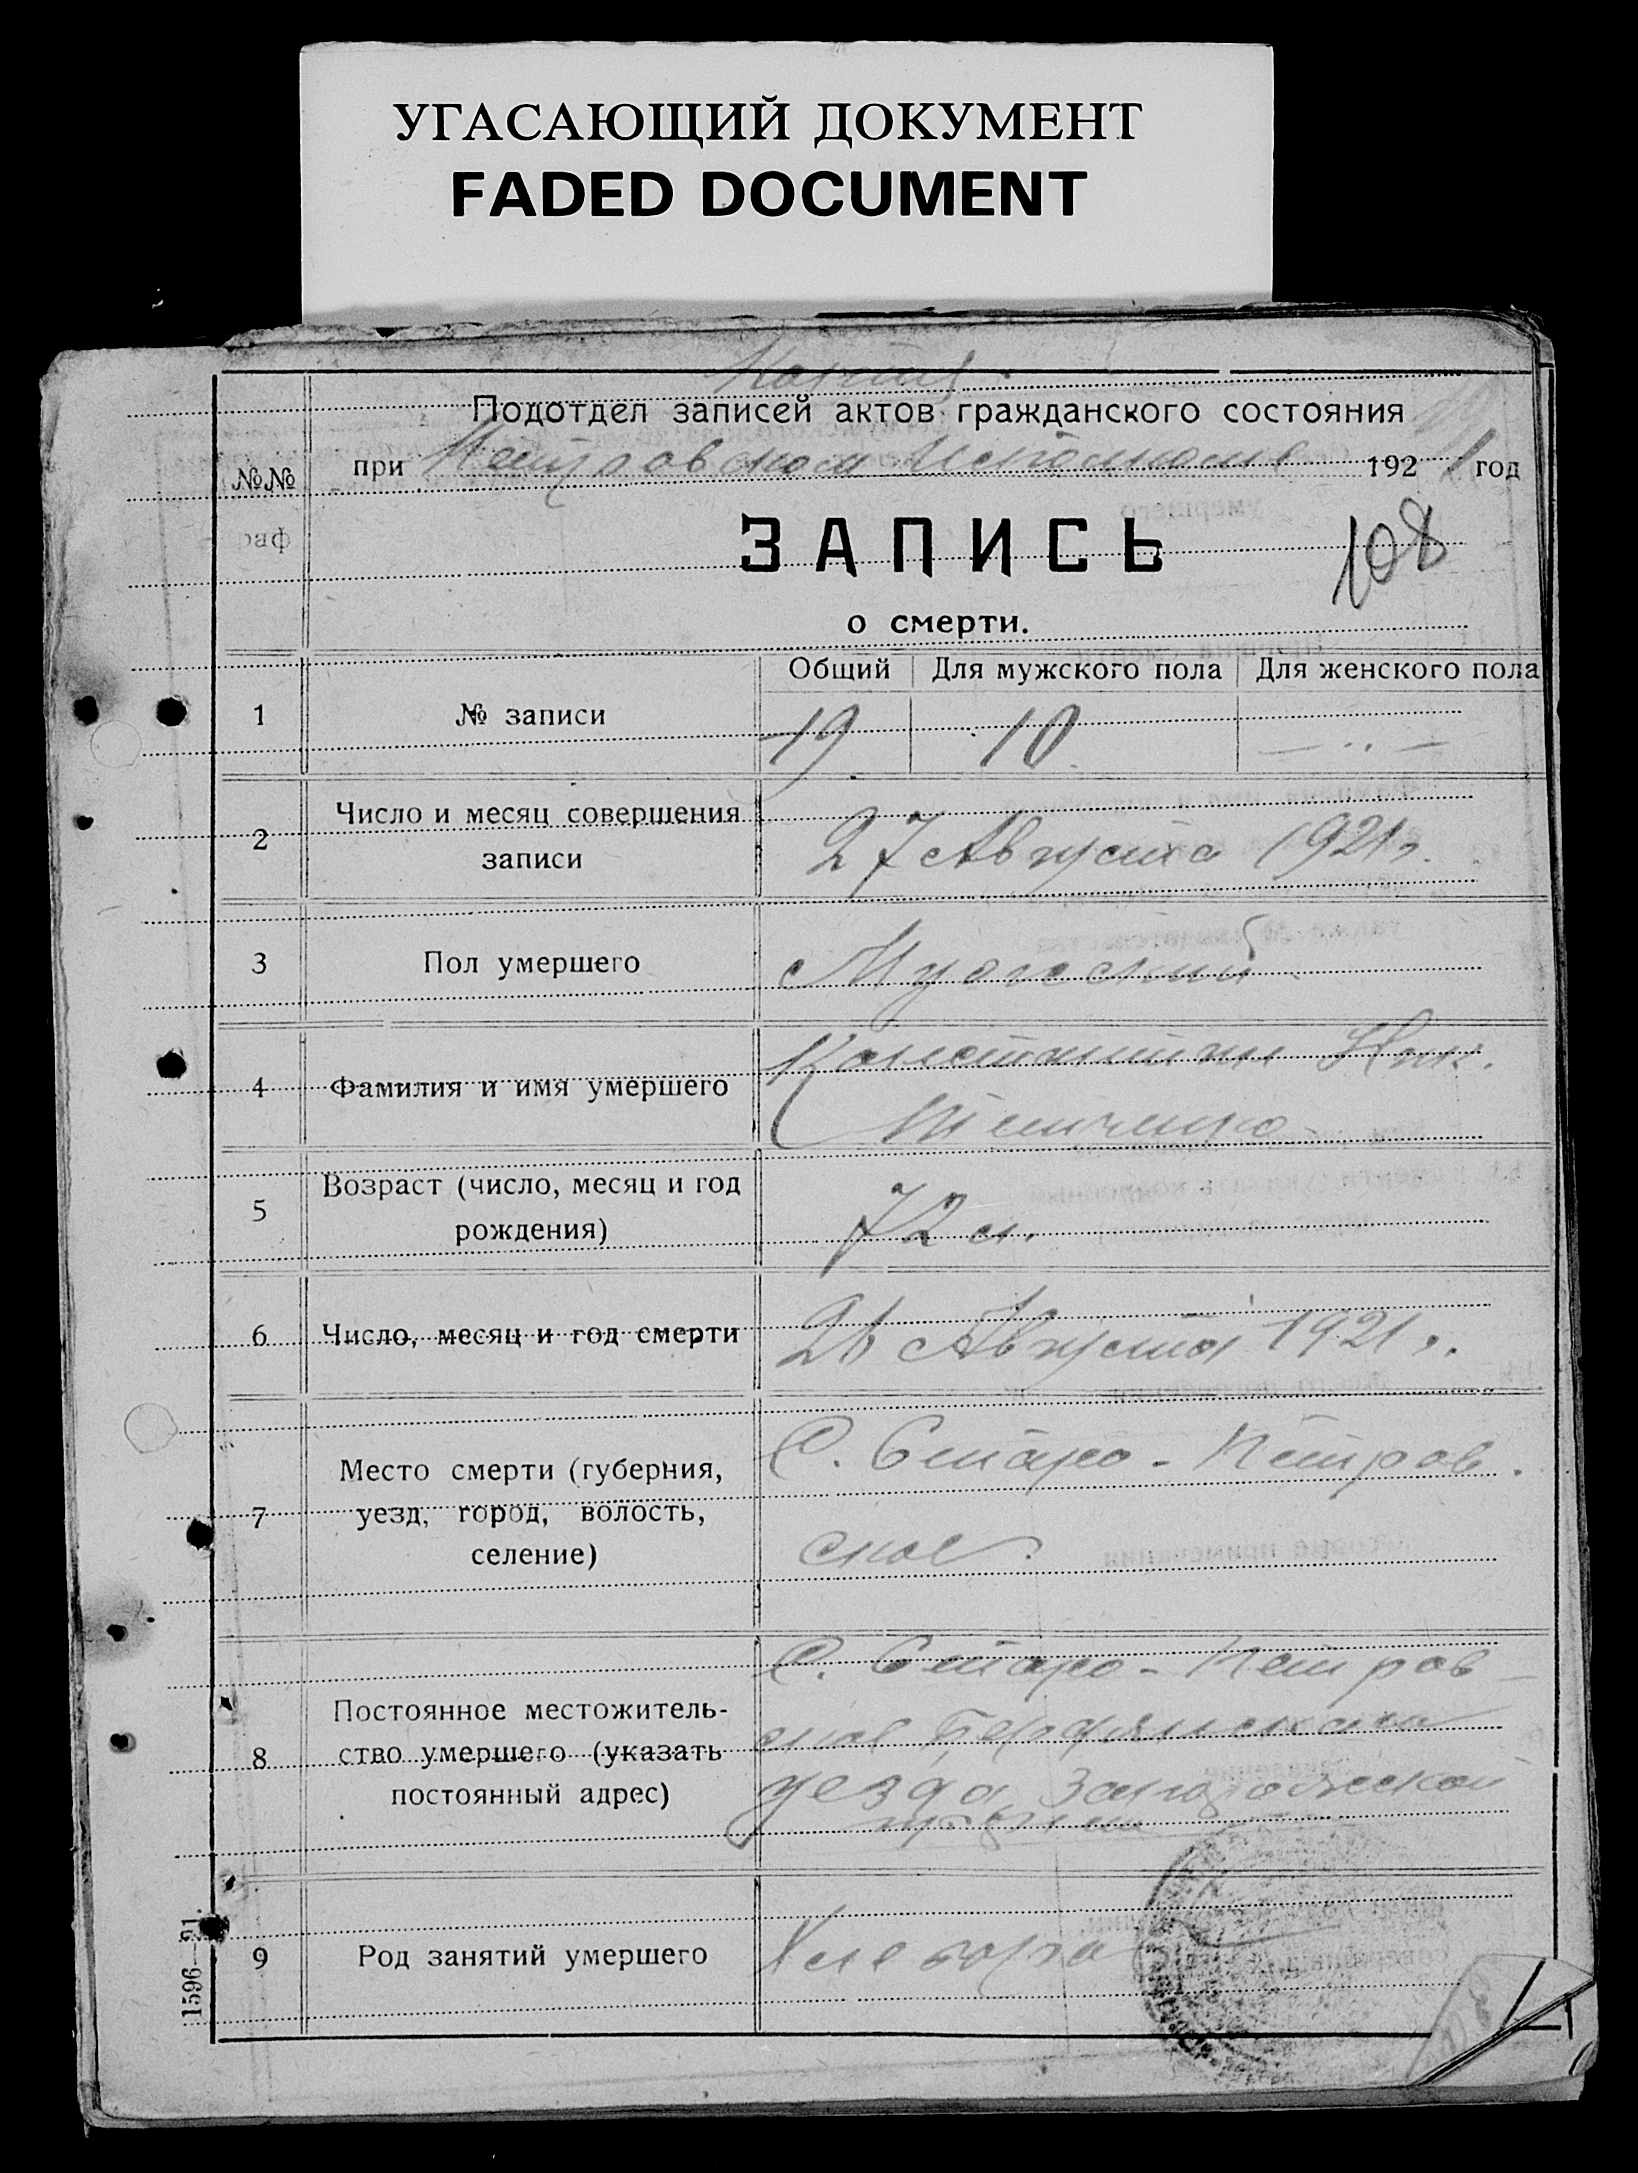 УГАСАЮЩИЙ ДОКУМЕНТ
FADED DOCUMENT
Копия.
Подотдел записей актов гражданского состояния
№№
при Петровском Исполкоме 1921 год
раф
ЗАПИСЬ
108
о смерти.
Общий Для мужского пола Для женского пола
1 № записи 19 10 — ·· —
2 Число и месяц совершения
записи
27 Августа 1921 г.
3 Пол умершего Мужской
4 Фамилия и имя умершего
Константин Ник.
5 Возраст (число, месяц и год
рождения)
72 л.
6 Число, месяц и год смерти 26 Августа 1921 г.
7 Место смерти (губерния,
уезд, город, волость,
селение)
С. Старо-Петров
ское
8 Постоянное местожитель-
ство умершего (указать
постоянный адрес)
С. Старо-Петров-
ское Бердянского
уезда Запорожской
губернии
9 Род занятий умершего Хлебороб
1596—21.